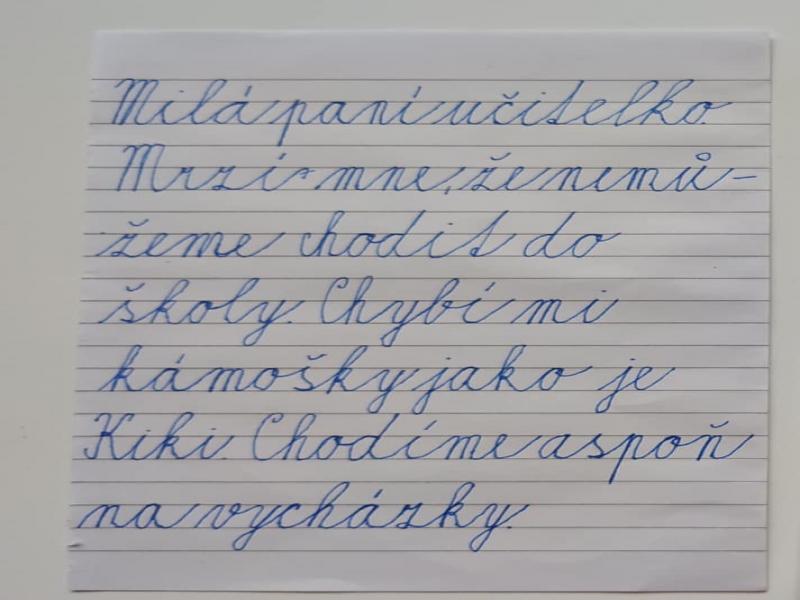 Milá paní učitelko.
Mrzí mne, že nemů-
žeme chodit do
školy. Chybí mi
kámošky jako je
Kiki. Chodíme aspoň
na vycházky.